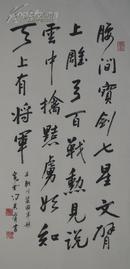 腰间宝剑七星文臂
上雕弓百战勳见说
云中擒黠虏始知
天上有将军